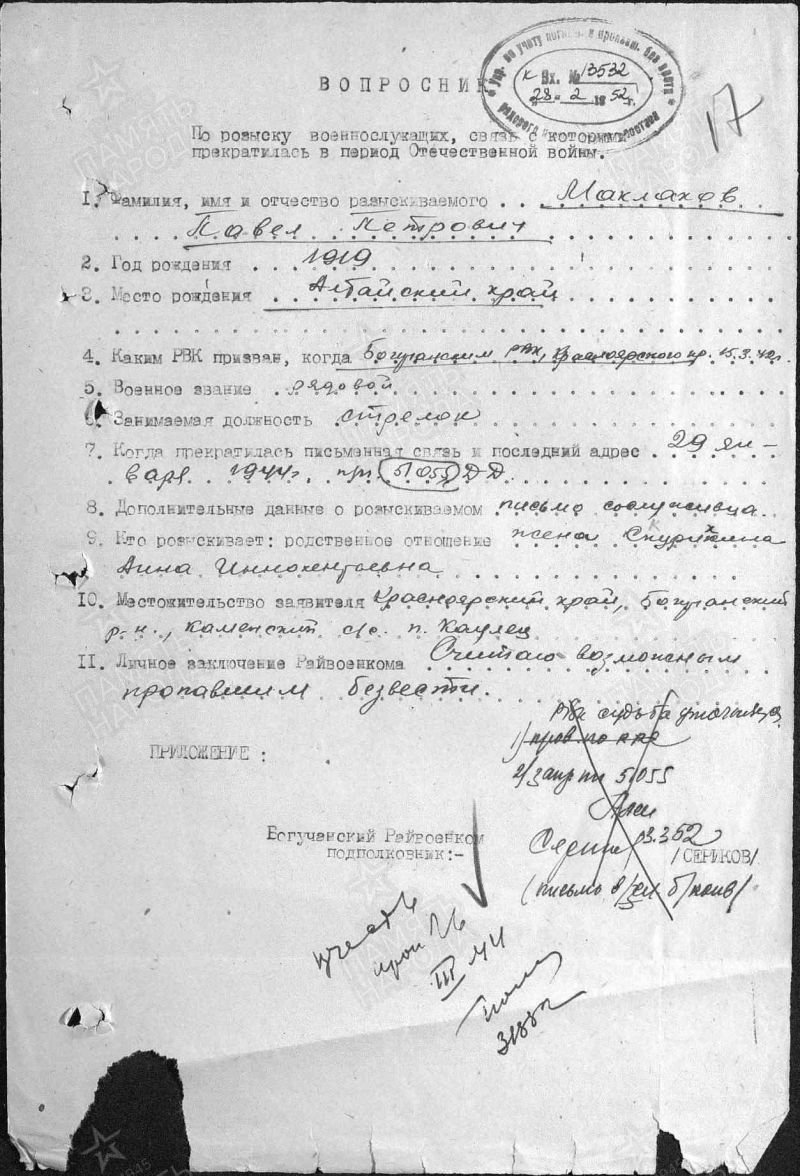 Упр. по учету погибш. и пропавш. без вести
к Вх. № 13532
"28" 2 1952 г.
рядового и состава
17
ВОПРОСНИК
По розыску военнослужащих, связь с которыми
прекратилась в период Отечественной войны.
1. Фамилия, имя и отчество разыскиваемого . . Маклахов
Павел Петрович
2. Год рождения . . . 1919
3. Место рождения . . Алтайский край
4. Каким РВК призван, когда Богучанским РВК, Красноярского кр. 15.3.42г.
5. Военное звание рядовой
6. Занимаемая должность стрелок
7. Когда прекратилась письменная связь и последний адрес . 29 ян-
варя 1944г. п/п. 51055 ДД
8. Дополнительные данные о разыскиваемом письмо сослуживца
9. Кто розыскивает: родственное отношение жена Скурихина
Анна Иннокентьевна
10. Местожительство заявителя Красноярский край, Богучанский
р-н., Каменский с/с. п. Каулец
11. Личное заключение Райвоенкома Считаю возможным
пропавшим безвести.
РВК судьба
1) пров. по
2) запр пп 51055
ПРИЛОЖЕНИЕ :
Богучанский Райвоенком
подполковник:-
3.3.52
/СЕРИКОВ/
(письмо
учесть
проп б/в
III 44